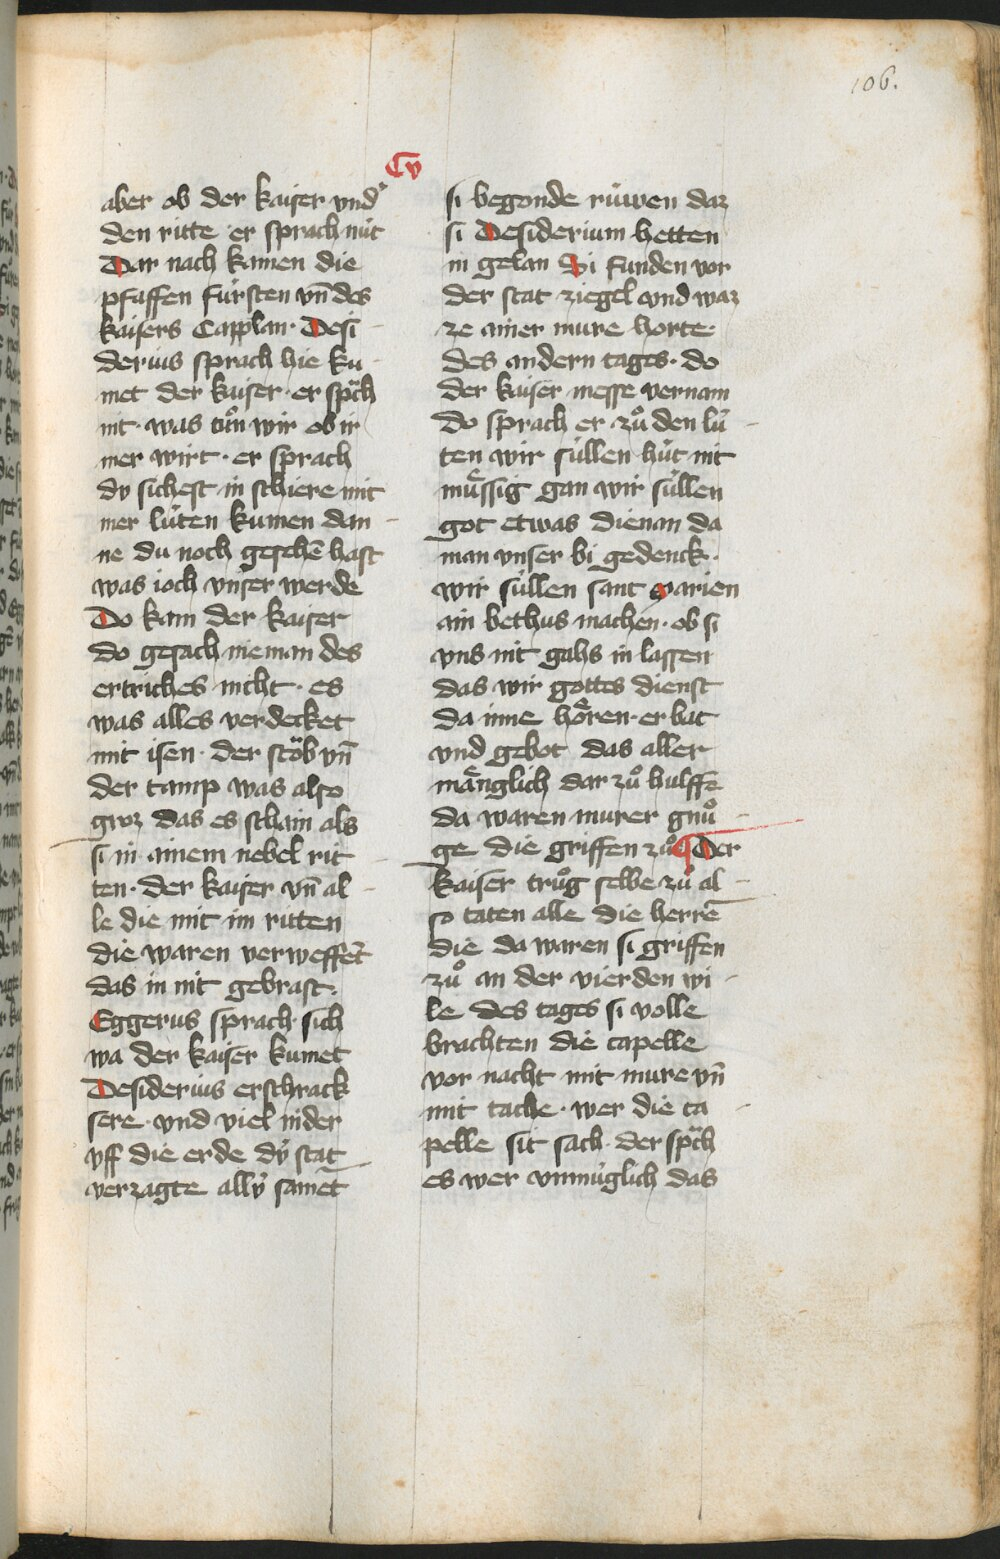 106.
Cv
aber ob der kaiser vnd͛
den ritte er sprach nút
Dar nach kamen die
pfaffen fúrsten vn̄ des
kaisers Capplan· Desi
derius sprach hie ku
met der kaiser· er sp̈ch
nit· was tuͦn wir ob ir
mer wirt· er sprach
dv sichest in schiere mit
mer lúten kumen dan
ne du noch gesehē hast
was ioch vnser werde
Do kam der kaiser
do gesach nieman des
ertriches nicht· es
was alles verdecket
mit isen· der stöb vn̄
der tamp was also
groz das es schain als
si in ainem nebel rit
ten· der kaiser vn̄ al
le die mit im ritten
die waren verweffet̄
das in nit gebrast·
Eggerus sprach sich
wa der kaiser kumet
Desiderius erschrack
sere· vnd viel nider
vff die erde dv́ stat
verzagte allv́ samet̄
si begonde rúwen daz
si Desiderium hetten
in gelan Si funden vor
der stat ziegel vnd waz
ze ainer mure horte·
des andern tages· do
der kaiser messe vernam
do sprach er zuͦ den lú
ten wir súllen hút nit
muͤssig gan wir súllen
got etwas dienan da
man vnser bi gedenck·
wir súllen sant marien
ain bethus machen· ob si
vns nit gahs in lassen
das wir gottes dienst
da inne hoͤren· er bat
vnd gebot das aller
maͤnglich dar zuͦ hulffe
da waren murer gnuͦ
ge die griffen zuͦ ¶ Der
kaiser truͦg selbe zuͦ al
so taten alle die herrē
die da waren si griffen
zuͦ an der vierden wi
le des tages si volle
brachten die capelle
vor nacht mit mure vn̄
mit tache· wer die ca
pelle sit sach· der sp̈ch
es wer vnmúglich das